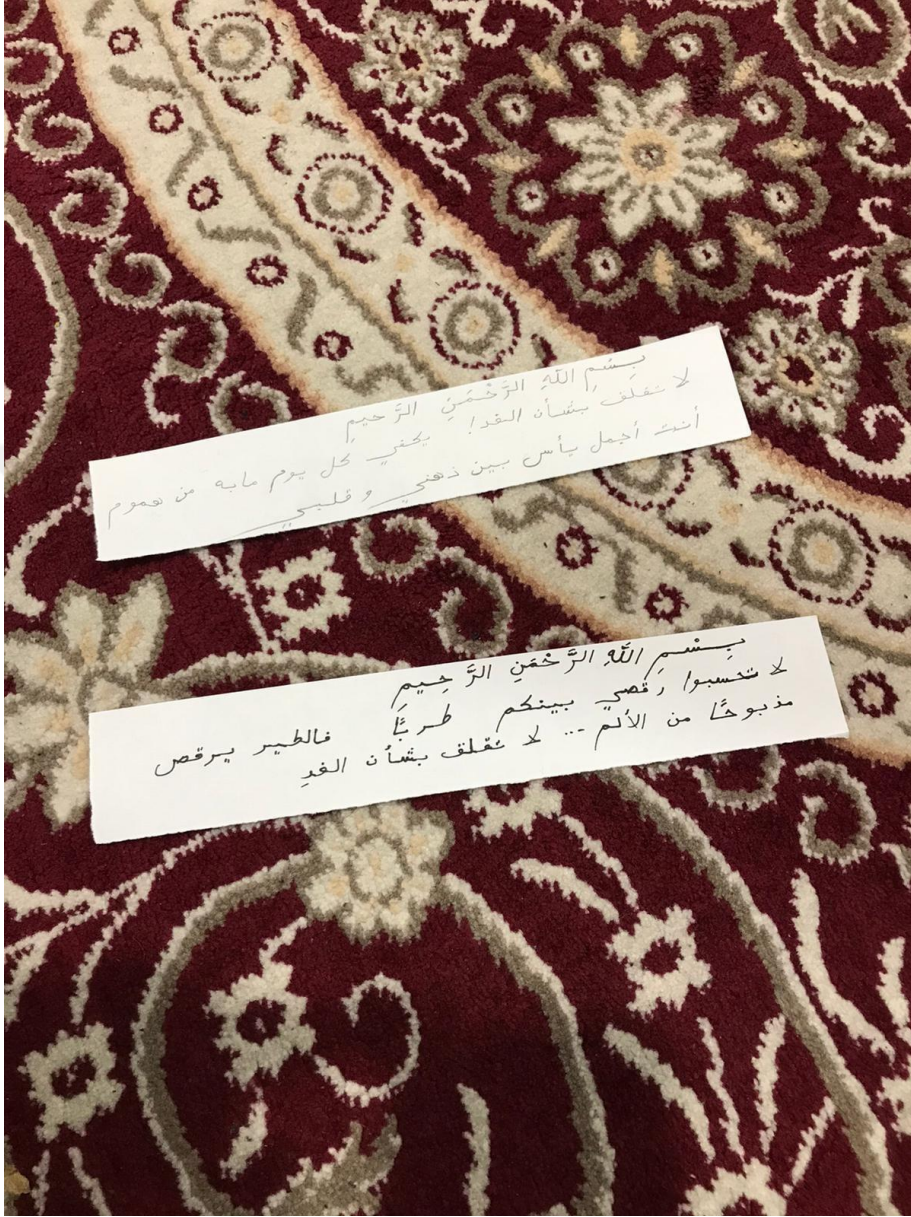 بِسْمِ اللهِ الرَّحْمَنِ الرَّحيمِ
لا تقلق بشأن الغد! يكفي كل يوم مابه من هموم
أنت أجمل بأس بين ذهني و قلبي
بِسْمِ اللَّهِ الرَّحْمَنِ الرَّحِيمِ
لا تحسبوا رقصي بينكم طربًا فالطير يرقص
مذبوحًا من الألم ... لا تقلق بشأن الغدِ